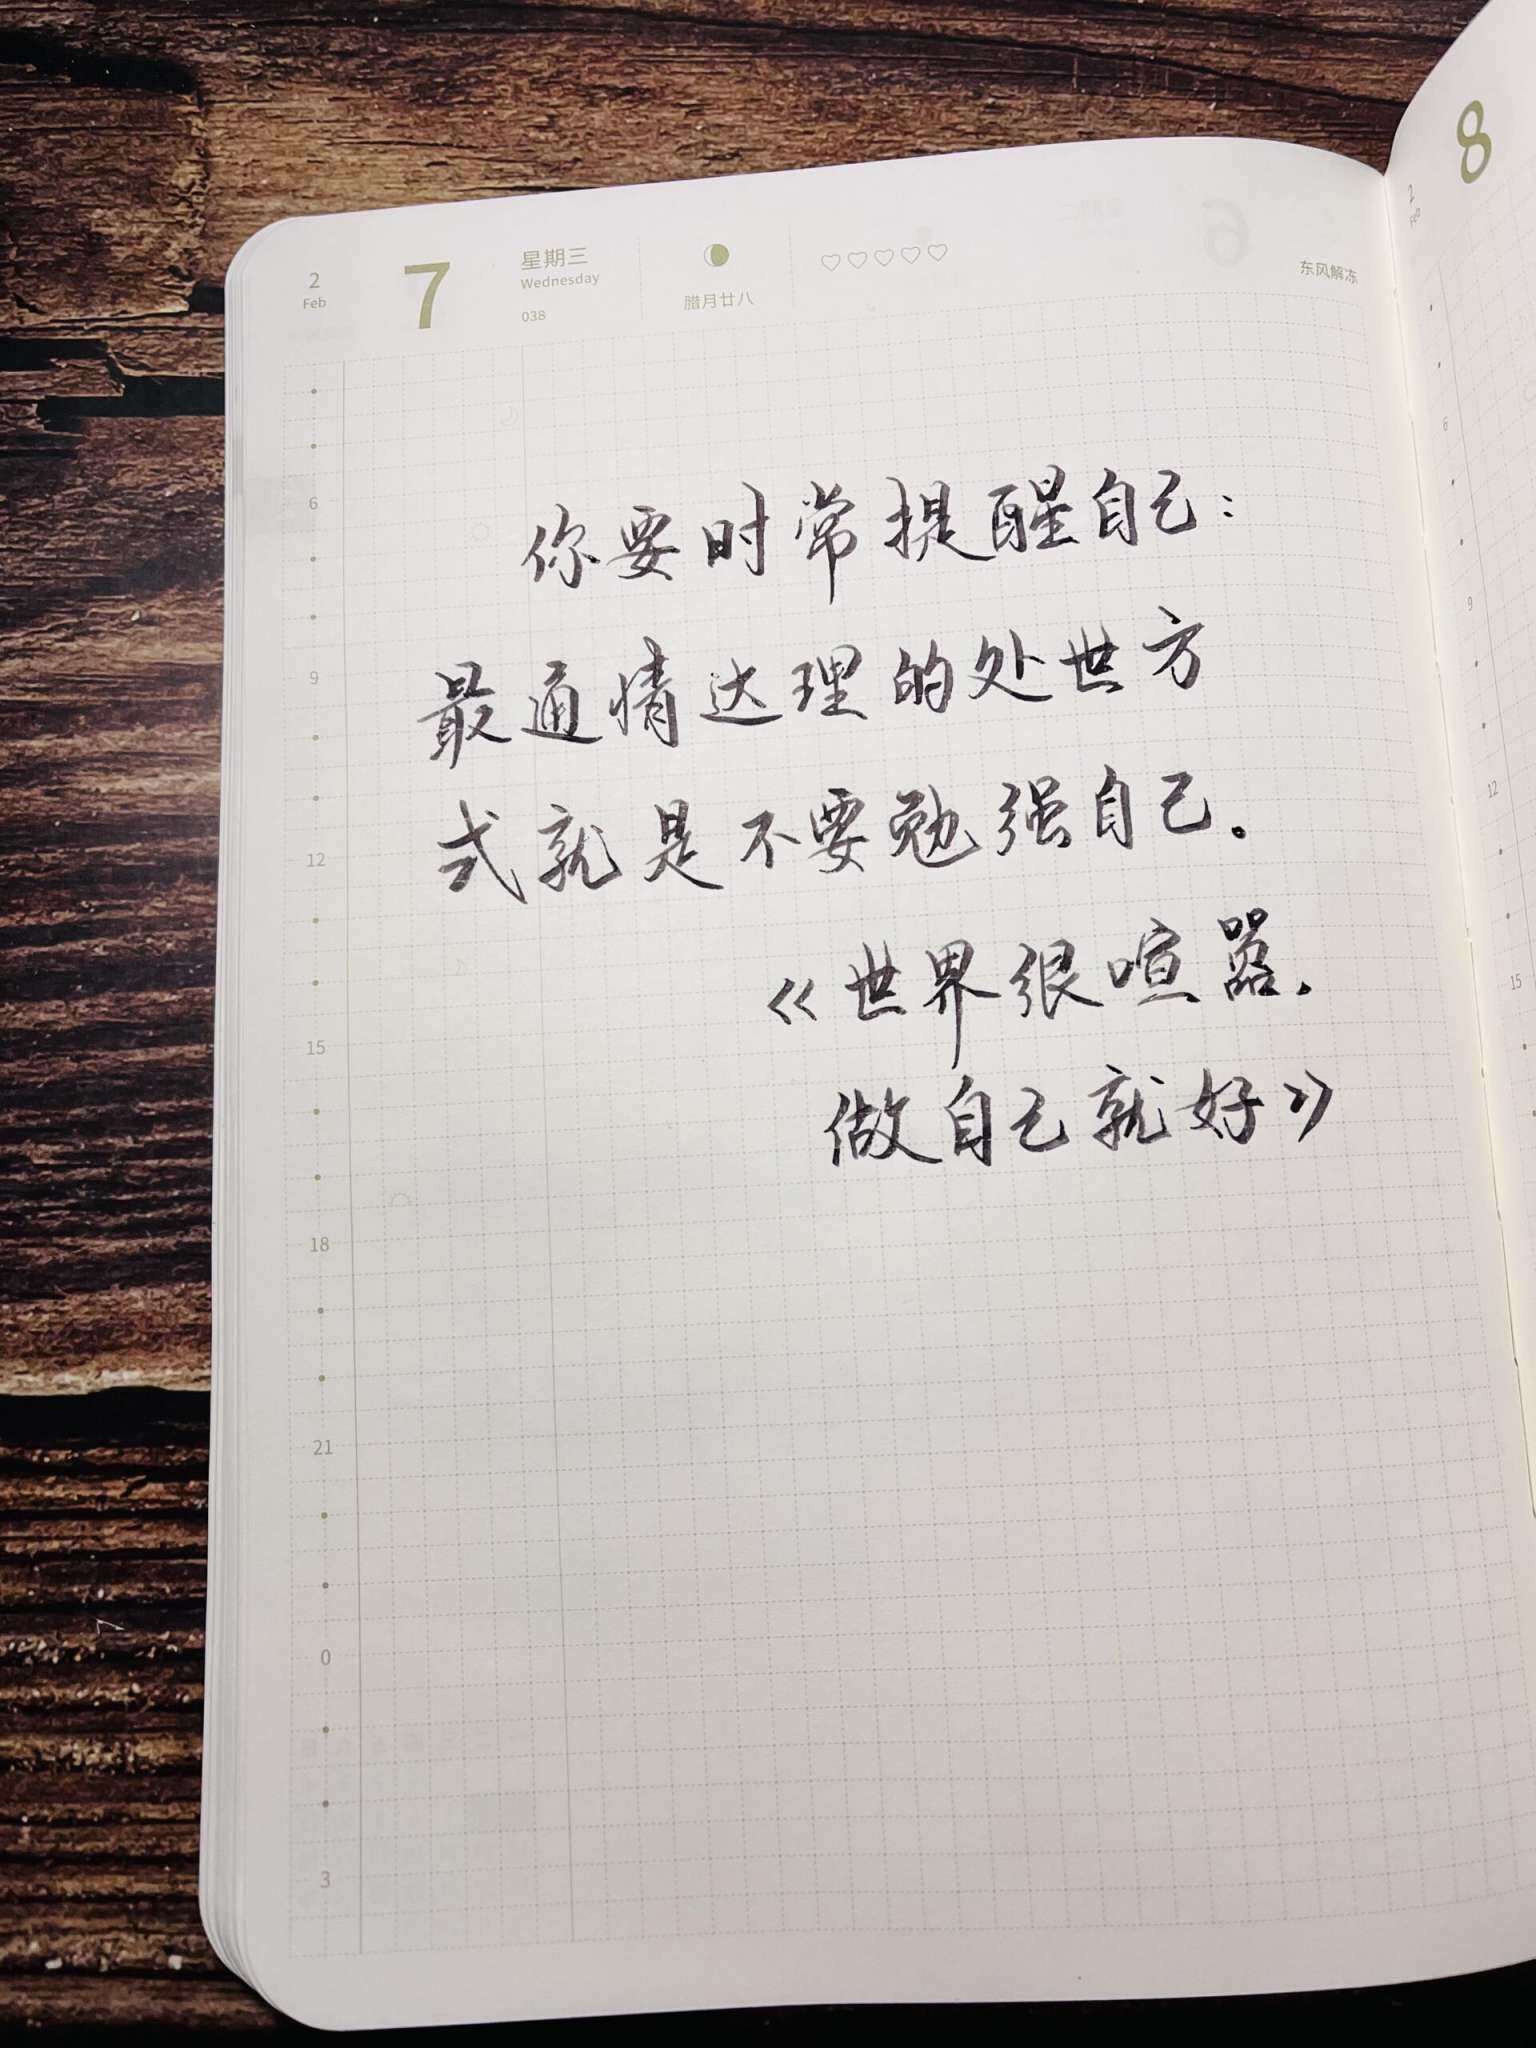 2
Feb
7
星期三
Wednesday
038
腊月廿八
东风解冻
你要时常提醒自己:
最通情达理的处世方
式就是不要勉强自己.
《世界很喧嚣.
做自己就好》
6
9
12
15
18
21
0
3
2
Feb
8
6
9
12
15